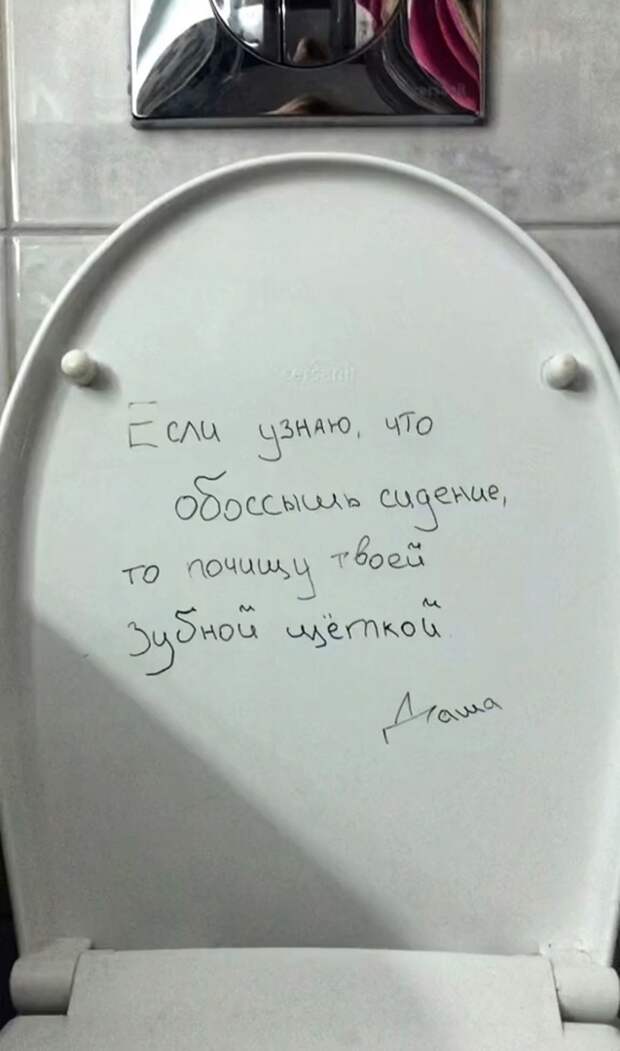 Если узнаю, что
обоссышь сидение,
то почищу твоей
зубной щёткой
Даша